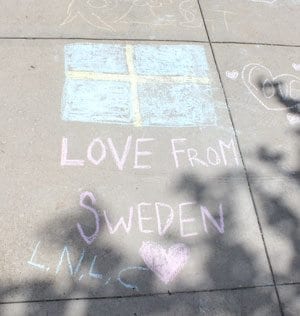 LOVE FROM
SWEDEN
L.N.L.C
LOVE